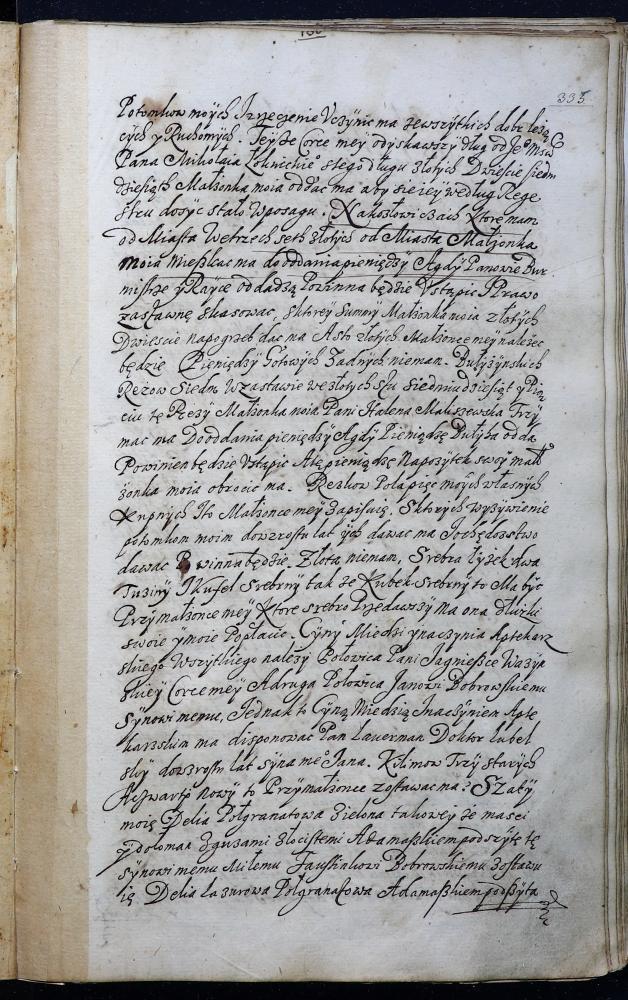 335
Potomkow moych Jrzeczenie Uczynic ma ze wszytkich dobr leżą
cych y Ruchomych. Teyże Corce mey odyskawszy dług od Je° Mśći
Pana Mikołaia z tego długu złotych Dwiescie siedm
dziesiąth Małżonka moia oddac ma aby sie iey według Rege
stru dosyc stało Wposagu. Na które mam
od Miasta We trzech seth złotych od Miasta Małżonka
moia Mieszkac ma do oddania pieniędzy Agdy Panowie Bur
mistrze y Rayce oddadzą Powinna będzie Vstąpic y Prawo
zastawne skasowac, sktorey Summy Małżonka moia złotych
Dwiescie na pogrzeb dac ma A sto złotych Małżonce mey należec
będzie Pieniędzy Gotowych żadnych nie mam. Butyżynskich
Reżow Siedm W zastawie we złotych stu siedmiudziesiąt y Pię
ciu te Reży Małżonka moia Pani Halena Maluszewska Trzy
mac ma Do oddania pieniędzy Agdy Pieniądze Butyha odda
Powinien będzie Vstąpic A te pieniądze Na pożytek swoy małż
żonka moia obrocic ma. Rezkow Pola pięc moych własnych
Kupnych Ito Małżonce mey zapisuię. Sktorych wyżywienie
potomkom moim do wzrostu lat ych dawac ma Jochędostwo
dawac Powinna będzie. Złota nie mam, Srebra łyżek dwa
Tuziny J Kufel Srebrny tak że Kubek Srebrny to Ma byc
Przy małżonce mey Ktore srebro Przedawszy ma ona długi
swoie y moie Popłacic. Cyny Miedzi y naczynia Aptekarz
skiego Wszytkiego należy Połowica Pani Jagnieszce
skiey Corce mey A druga Połowica Janowi Bobrowskiemu
Synowi memu, Jednak tą Cyną Miedzią Jnaczyniem Apte
karskim ma disponowac Pan Lauerman Doktor Lubel
sky do wzrostu lat syna me° Jana. Kilimow Trzy starych
A czwarty nowy to Przy małżonce zostawac ma. Szaty
moie Delia Połgranatowa zielona takowey że masci
y doloman zguzami złocistemi Adamaszkiem podszyte te
Synowi memu Miłemu Faustinkowi Bobrowskiemu zostawu
ię Delia Lazurowa Połgranatowa Adamaszkiem podszyta